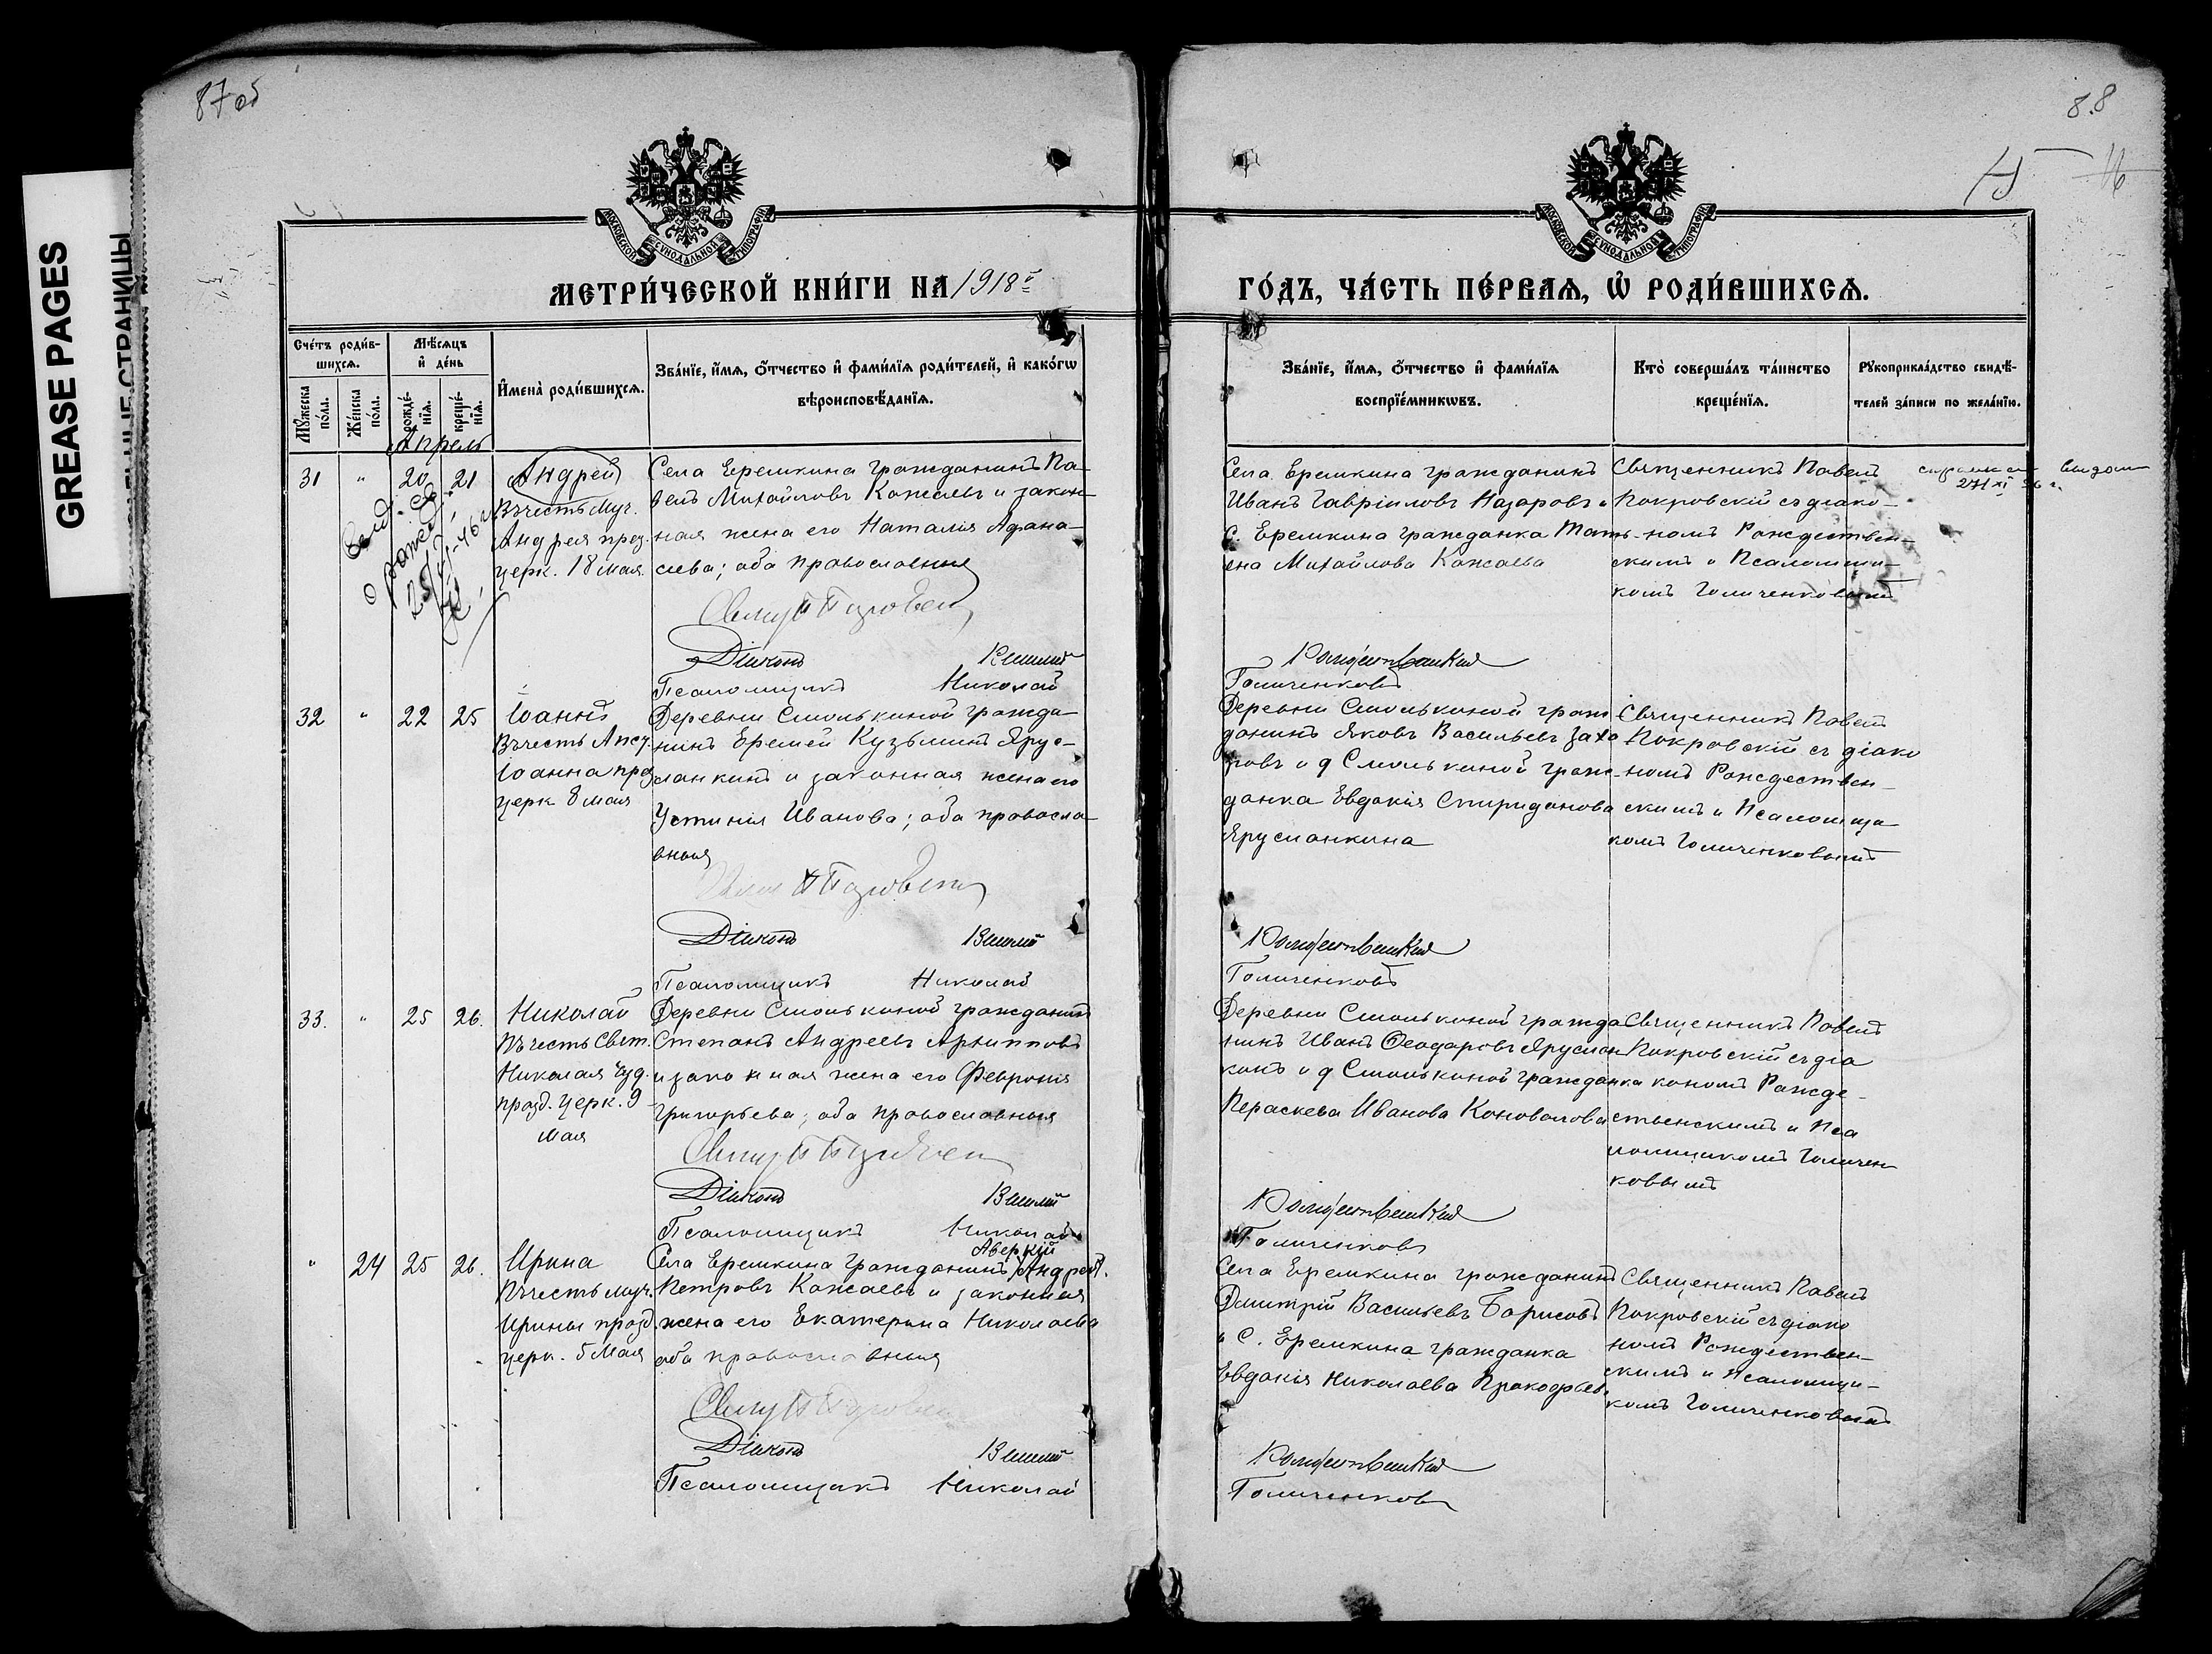 87об
88
15
16
GREASE PAGES
МОСКОВСКОЙ СѴНОДАЛЬНОЙ ТИПОГРАФІИ
МОСКОВСКОЙ СѴНОДАЛЬНОЙ ТИПОГРАФІИ
МЕТРИ́ЧЕСКОЙ КНИ́ГИ НА 1918й
ГО́ДЪ, ЧА́СТЬ ПЕ́РВАѦ, Ѡ҆ РОДИ́ВШИХСѦ.
Сче́тъ роди́в-
шихсѧ.
Мꙋ́жеска
по́ла.
Же́нска
по́ла.
Мѣ́сѧцъ
и҆ де́нь
рожде́-
нїѧ.
креще́-
нїѧ.
И҆мена̀ роди́вшихсѧ.
Зва́нїе, и҆́мѧ, ѻ҆́тчество и҆ фами́лїѧ роди́телей, и҆ како́гѡ
вѣроисповѣ́данїѧ.
Зва́нїе, и҆́мѧ, ѻ҆́тчество и҆ фами́лїѧ
воспрїе́мникѡвъ.
Кто̀ соверша́лъ та́инство
креще́нїѧ.
Рꙋкоприкла́дство свидѣ́-
телей за́писи по жела́нїю.
Апрель
31 " 20 21
Андрей
Въ честь Муч.
Андрея праз.
церк. 18 мая.
Села Еремкина гражданинъ Па-
велъ Михайловъ Кажаевъ и закон-
ная жена его Наталія Афана-
сьева; оба православныя
Діаконъ Василій
Псаломщикъ Николай
Села Еремкина гражданинъ
Иванъ Гавріиловъ Назаровъ и
с. Еремкина гражданка Тать-
яна Михайлова Кажаева
Рождественскій
Голиченковъ
Священникъ Павелъ
Покровскій съ діако-
номъ Рождествен-
скимъ и Псаломщи-
комъ Голиченковымъ
32 " 22 25
Іоаннъ
Въ честь Апст.
Іоанна праз
церк 8 мая
Деревни Смолькиной гражда-
нинъ Еремей Кузьминъ Ярус-
ланкинъ и законная жена его
Устинія Иванова; оба правосла-
вныя
Діаконъ Василій
Псаломщикъ Николай
Деревни Смолькиной граж
данинъ Яковъ Васильевъ Заха
ровъ и д Смолькиной граж-
данка Евдокія Спиридонова
Ярусланкина
Рождественскій
Голиченковъ
Священникъ Павелъ
Покровскій съ діако
номъ Рождествен-
скимъ и Псаломщи
комъ Голиченковымъ
33. " 25 26.
Николай
Въ честь Свят.
Николая Чуд.
празд. церк. 9
мая
Деревни Смолькиной гражданинъ
Степанъ Андреевъ Архипповъ
и законная жена его Февронія
Григорьева; оба православныя
Діаконъ Василій
Псаломщикъ Николай
Деревни Смолькиной гражда
нинъ Иванъ Ѳеодоровъ Яруслан
кинъ и д Смолькиной гражданка
Параскева Иванова Коновалова
Рождественскій
Голиченковъ
Священникъ Павелъ
Покровскій съ діа
кономъ Рожде-
ственскимъ и Пса
ломщикомъ Голичен
ковымъ
" 24 25 26.
Ирина
Въ честь муч.
Ирины празд.
церк. 5 Мая
Аверкій
Села Еремкина гражданинъ Андрей
Петровъ Кажаевъ и законная
жена его Екатерина Николаева
оба православныя
Діаконъ Василій
Псаломщикъ Николай
Села Еремкина гражданинъ
Дмитрій Васильевъ Борисовъ
и С. Еремкина гражданка
Евдокія Николаева Прокофьев.
Рождественскій
Голиченковъ
Священникъ Павелъ
Покровскій съ діако
номъ Рождествен-
скимъ и Псаломщи-
комъ Голиченковымъ